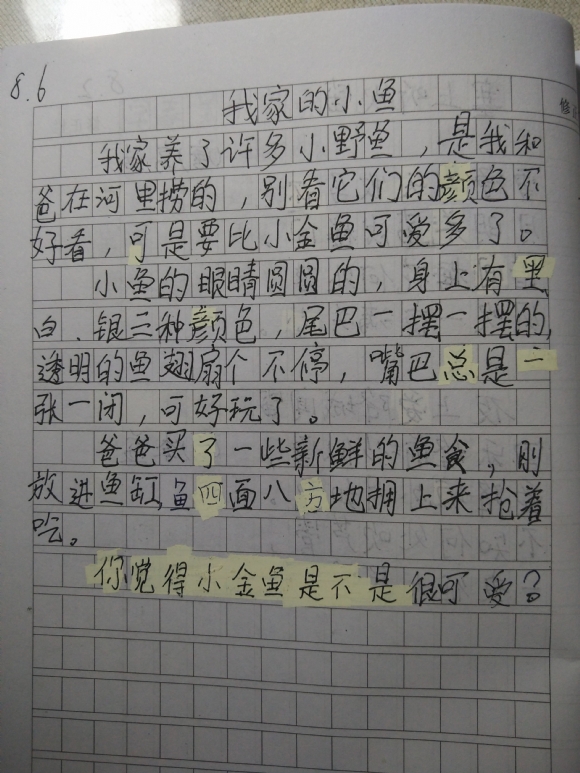 8.6
我家的小鱼
我家养了许多小野鱼，是我和
爸在河里捞的，别看它们的颜色不
好看，可是要比小金鱼可爱多了。
小鱼的眼睛圆圆的，身上有黑
白、银三种颜色，尾巴一摆一摆的，
透明的鱼翅扇个不停，嘴巴总是一
张一闭，可好玩了。
爸爸买了一些新鲜的鱼食，刚
放进鱼缸，鱼四面八方地拥上来抢着
吃。
你觉得小金鱼是不是很可爱？